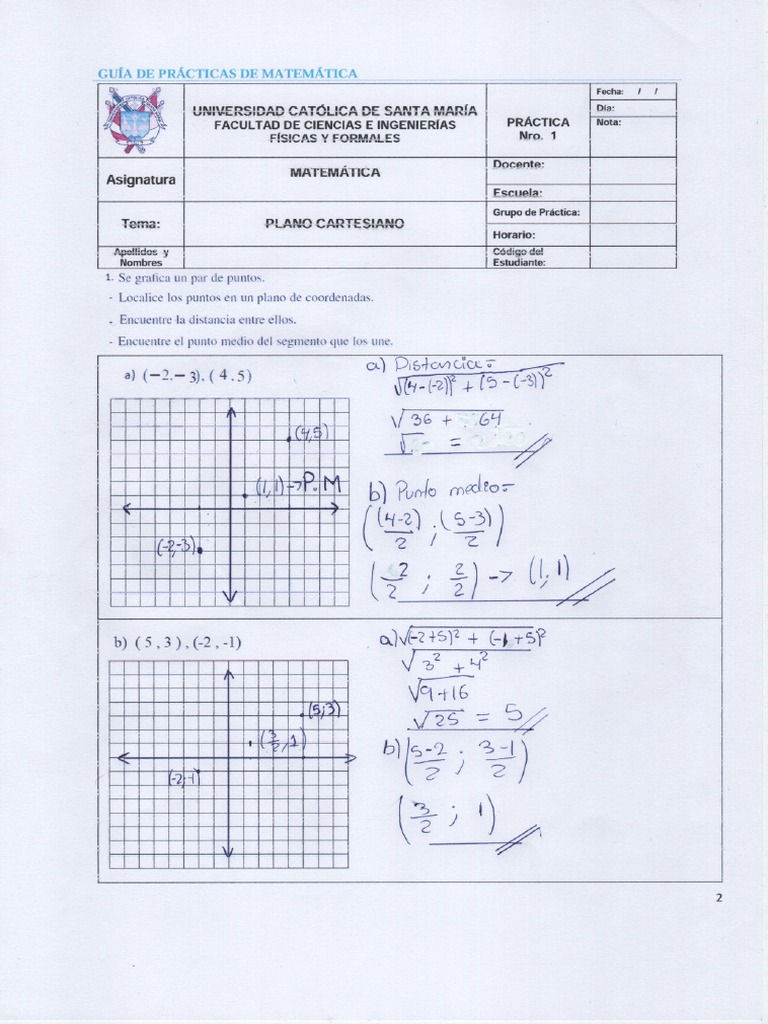 GUÍA DE PRÁCTICAS DE MATEMÁTICA
UNIVERSIDAD CATÓLICA DE SANTA MARÍA
FACULTAD DE CIENCIAS E INGENIERÍAS
FÍSICAS Y FORMALES
PRÁCTICA
Nro. 1
Fecha: / /
Día:
Nota:
Asignatura
MATEMÁTICA
Docente:
Escuela:
Tema:
PLANO CARTESIANO
Grupo de Práctica:
Horario:
Apellidos y
Nombres
Código del
Estudiante:
1. Se grafica un par de puntos.
- Localice los puntos en un plano de coordenadas.
- Encuentre la distancia entre ellos.
- Encuentre el punto medio del segmento que los une.
a) (−2.−3). ( 4 . 5)
(4,5)
(1,1)→P.M
(-2,-3)
a) Distancia=
√(4-(-2))² + (5-(-3))²
√36 + 64
√ =
b) Punto medio=
((4-2)/2 ; (5-3)/2)
(2/2 ; 2/2) → (1,1)
b) ( 5 , 3 ) , (-2 , -1)
(5;3)
(3/2,1)
(-2;-1)
a) √(-2+5)² + (-1+5)²
√3² + 4²
√9+16
√25 = 5
b) (5-2/2 ; 3-1/2)
(3/2 ; 1)
2